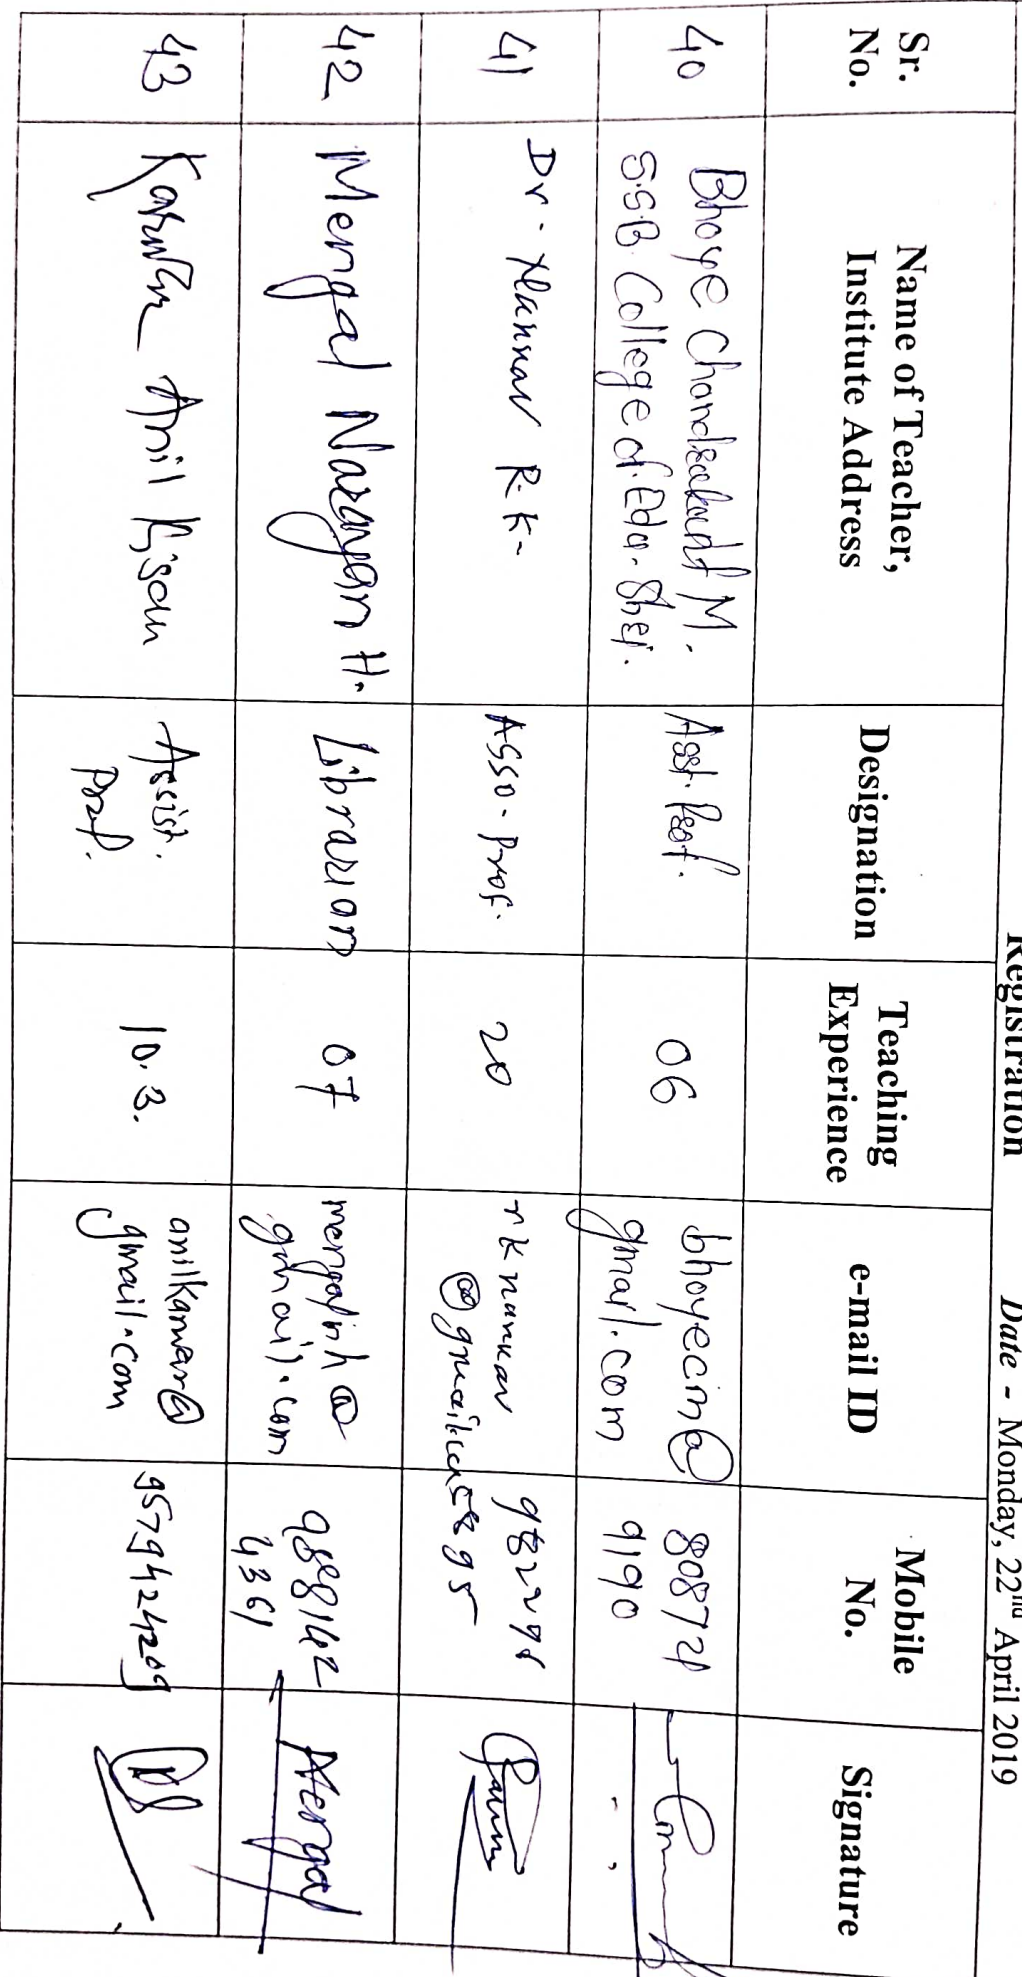 Registration
Date - Monday, 22nd April 2019
Sr. No.
Name of Teacher, Institute Address
Designation
Teaching Experience
e-mail ID
Mobile No.
Signature
40
Bhoye Chandrakant M.
S.S.B. College of Edu. Shei.
Asst. Prof.
06
bhoyecm@
gmail.com
808724
9190
41
Dr. Nannar R.K.
Asso. Prof.
20
rknannar
@gmail.com
982298
5895
42
Mengal Narayan H.
Librarian
07
mengalnh@
gmail.com
988142
4361
Mengal
43
Kanwar Anil Kisan
Assist.
Prof.
10.3.
anilkanwar@
gmail.com
9579424209